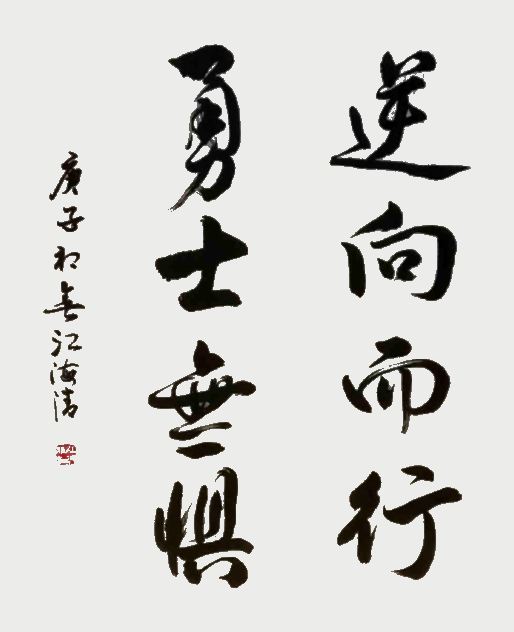 逆向而行
勇士無惧
庚子初春江海清